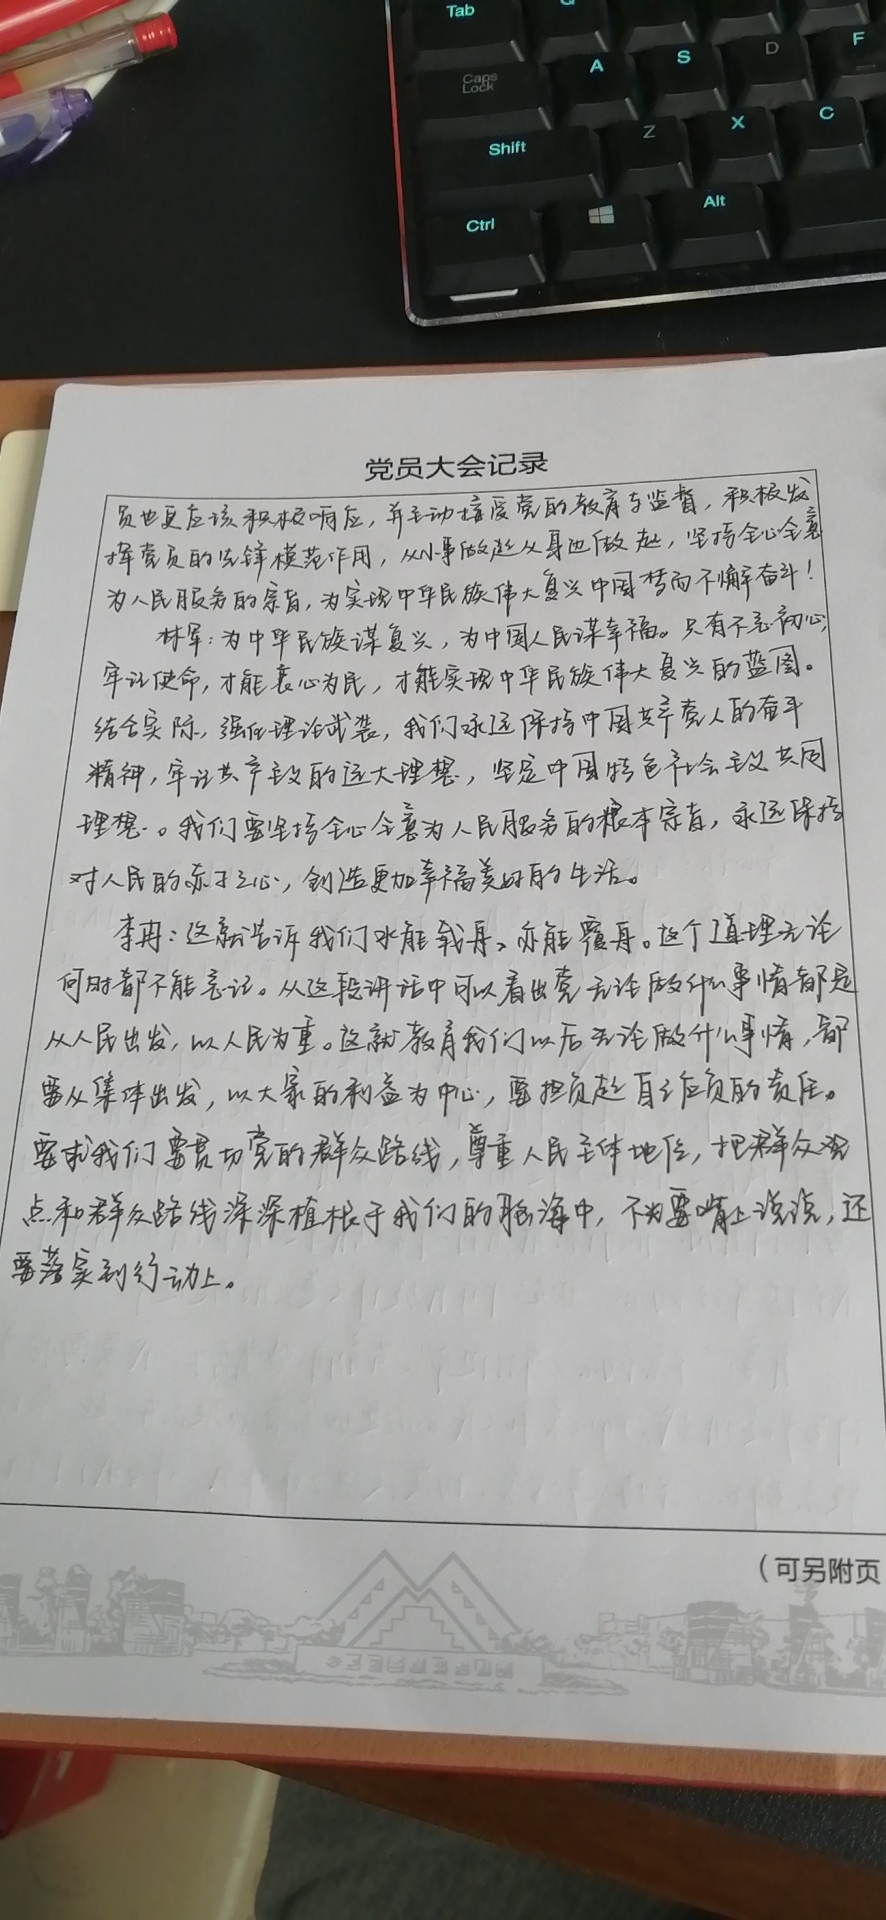 Tab
Q
Caps Lock
A
S
D
F
Shift
Z
X
C
Ctrl
Alt
党员大会记录
员也更应该积极响应，并主动接受党的教育与监督，积极发
挥党员的先锋模范作用，从小事做起从身边做起，坚持全心全意
为人民服务的宗旨，为实现中华民族伟大复兴中国梦而不懈奋斗！
林军：为中华民族谋复兴，为中国人民谋幸福。只有不忘初心，
牢记使命，才能衷心为民，才能实现中华民族伟大复兴的蓝图。
结合实际，强化理论武装，我们永远保持中国共产党人的奋斗
精神，牢记共产主义的远大理想，坚定中国特色社会主义共同
理想。我们要坚持全心全意为人民服务的根本宗旨，永远保持
对人民的赤子之心，创造更加幸福美好的生活。
李冉：这就告诉我们水能载舟、亦能覆舟。这个道理无论
何时都不能忘记。从这段讲话中可以看出党无论做什么事情都是
从人民出发，以人民为重。这就教育我们以后无论做什么事情，都
要从集体出发，以大家的利益为中心，要担负起自己应负的责任。
要求我们要贯切党的群众路线，尊重人民主体地位，把群众观
点和群众路线深深植根于我们的脑海中，不为要嘴上说说，还
要落实到行动上。
（可另附页